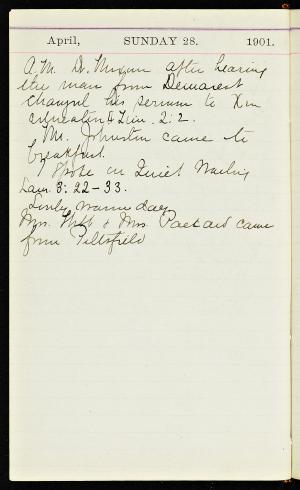 April, SUNDAY 28. 1901.
A.M. Dr. after hearing
the man from Demarest
changed his sermon to
2:2.
Mr. Johnston came to
breakfast.
Spoke on Quiet Waiting
Lam. 3:22-33.
Lovely warm day
Mrs. & Mrs. Packard came
from Pittsfield